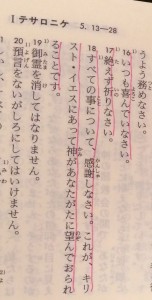 Iテサロニケ 5.13―28
うよう務めなさい。
16 いつも喜んでいなさい。
17 絶えず祈りなさい。
18 すべての事について、感謝しなさい。これが、キリ
スト・イエスにあって神があなたがたに望んでおられ
ることです。
19 御霊を消してはなりません。
20 預言をないがしろにしてはいけません。